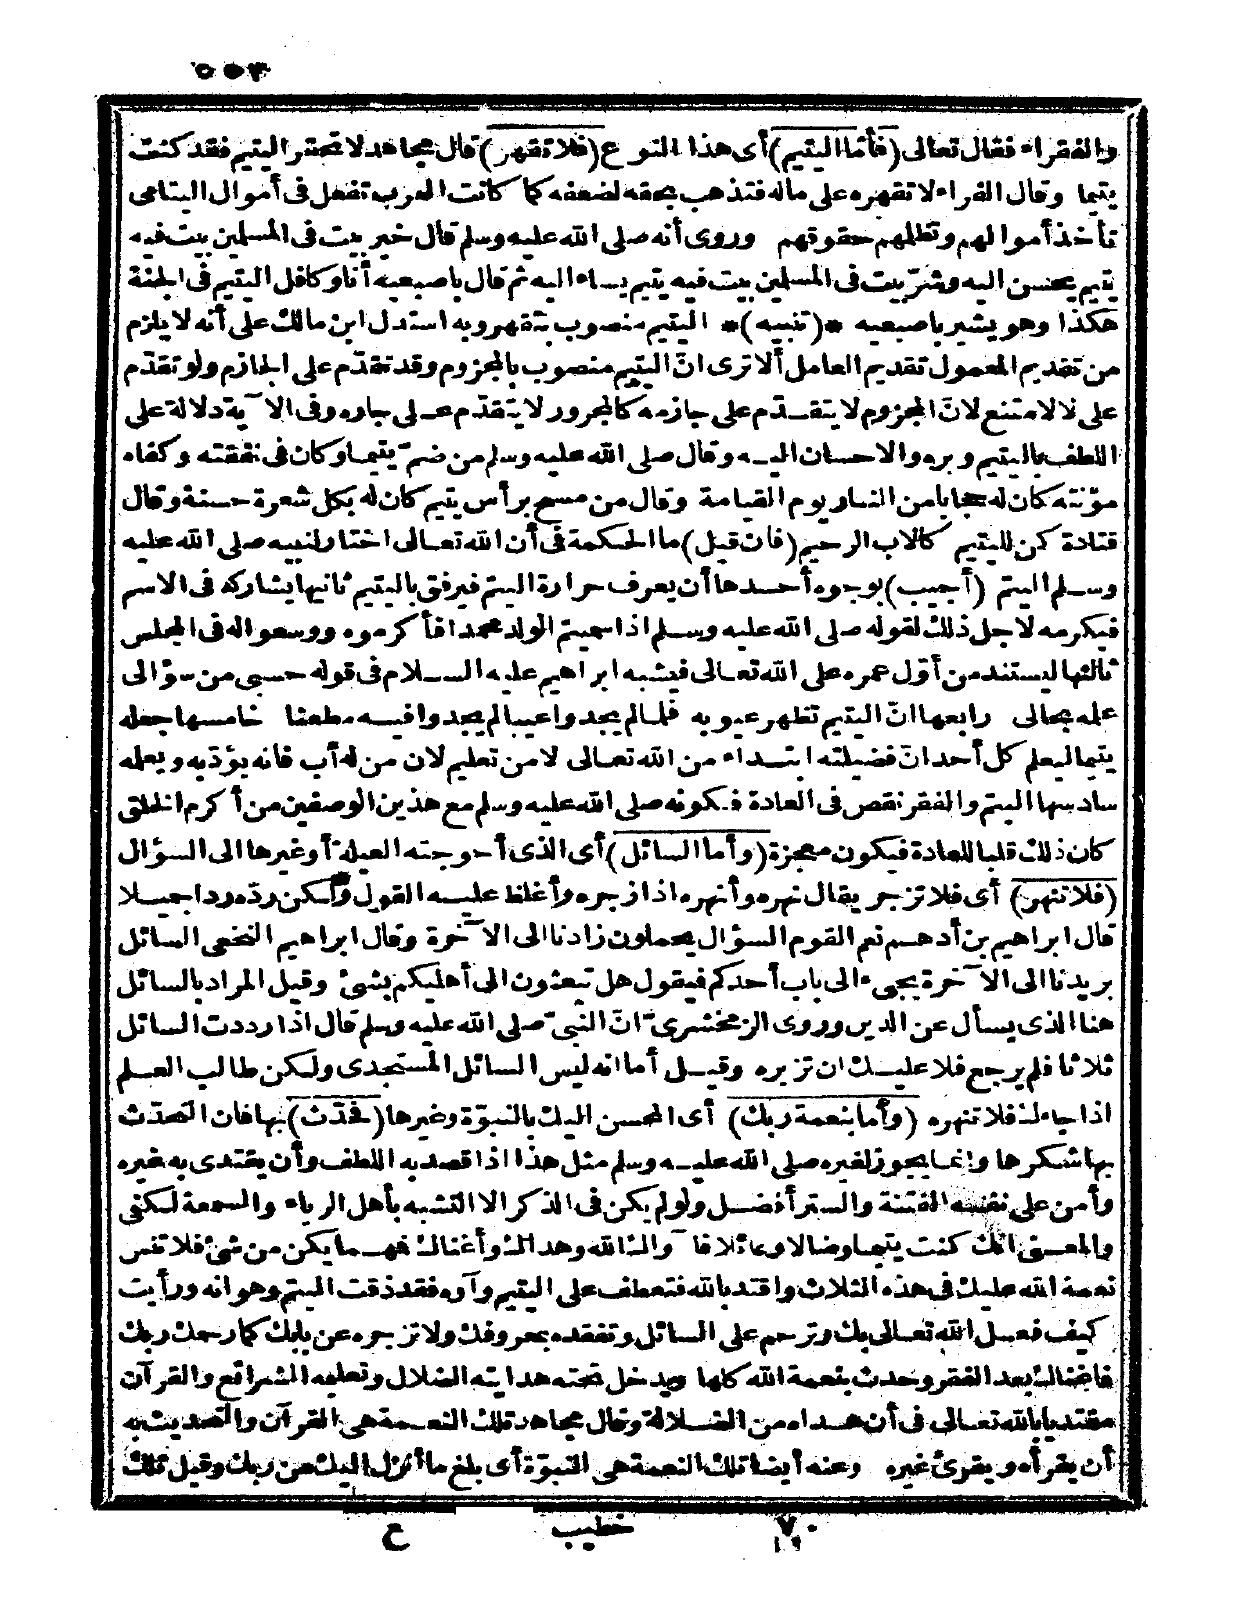 ٥٥٣
والفقراء فقال تعالى (فأما اليتيم) أى هذا النوع (فلا تقهر) قال مجاهد لا تحتقر اليتيم فقد كنت
يتيما وقال الفراء لا تقهره على ماله فتذهب بحقه لضعفه كما كانت العرب تفعل فى أموال اليتامى
تأخذ أموالهم وتظلمهم حقوقهم وروى أنه صلى الله عليه وسلم قال خير بيت فى المسلمين بيت فيه
يتيم يحسن اليه وشرّ بيت فى المسلمين بيت فيه يتيم يساء اليه ثم قال باصبعيه أنا وكافل اليتيم فى الجنة
هكذا وهو يشير باصبعيه *(تنبيه)* اليتيم منصوب بتقهر وبه استدل ابن مالك على أنه لا يلزم
من تقديم المعمول تقديم العامل ألا ترى انّ اليتيم منصوب بالمجزوم وقد تقدّم على الجازم ولو تقدّم
على لا لامتنع لانّ المجزوم لا يتقدّم على جازمه كالمجرور لا يتقدّم على جاره وفى الآية دلالة على
اللطف باليتيم وبره والاحسان اليه وقال صلى الله عليه وسلم من ضمّ يتيما وكان فى نفقته وكفاه
مؤنته كان له حجابا من النار يوم القيامة وقال من مسح برأس يتيم كان له بكل شعرة حسنة وقال
قتادة كن لليتيم كالاب الرحيم (فان قيل) ما الحكمة فى أن الله تعالى اختار لنبيه صلى الله عليه
وسلم اليتم (أجيب) بوجوه أحدها أن يعرف حرارة اليتم فيرفق باليتيم ثانيها يشاركه فى الاسم
فيكرمه لاجل ذلك لقوله صلى الله عليه وسلم اذا سميتم الولد محمدا فأكرموه ووسعوا له فى المجلس
ثالثها ليستند من أوّل عمره على الله تعالى فيشبه ابراهيم عليه السلام فى قوله حسبى من سؤالى
علمه بحالى رابعها انّ اليتيم تظهر عيوبه فلما لم يجدوا عيبا لم يجدوا فيه مطعنا خامسها جعله
يتيما ليعلم كل أحد انّ فضيلته ابتداء من الله تعالى لا من تعليم لان من له أب فانه يؤدّبه ويعلمه
سادسها اليتم والفقر نقص فى العادة فكونه صلى الله عليه وسلم مع هذين الوصفين من أكرم الخلق
كان ذلك قلبا للعادة فيكون معجزة (وأما السائل) أى الذى أحوجته العيلة أو غيرها الى السؤال
(فلا تنهر) أى فلا تزجر يقال نهره وأنهره اذا زجره وأغلظ عليه القول ولكن ردّه ردا جميلا
قال ابراهيم بن أدهم نم القوم السؤال يحملون زادنا الى الآخرة وقال ابراهيم النخعى السائل
بريدنا الى الآخرة يجىء الى باب أحدكم فيقول هل تبعثون الى أهليكم بشئ وقيل المراد بالسائل
هنا الذى يسأل عن الدين وروى الزمخشرى انّ النبىّ صلى الله عليه وسلم قال اذا رددت السائل
ثلاثا فلم يرجع فلا عليك ان تزبره وقيل أما انه ليس السائل المستجدى ولكن طالب العلم
اذا جاءك فلا تنهره (وأما بنعمة ربك) أى المحسن اليك بالنبوّة وغيرها (فحدّث) بها فان التحدّث
بها شكرها وانما يجوز لغيره صلى الله عليه وسلم مثل هذا اذا قصد به اللطف وأن يقتدى به غيره
وأمن على نفسه الفتنة والستر أفضل ولو لم يكن فى الذكر الا التشبه بأهل الرياء والسمعة لكفى
والمعنى انك كنت يتيما وضالا وعائلا فآواك الله وهداك وأغناك فهما يكن من شئ فلا تنس
نعمة الله عليك فى هذه الثلاث واقتد بالله فتعطف على اليتيم وآوه فقد ذقت اليتم وهوانه ورأيت
كيف فعل الله تعالى بك وترحم على السائل وتفقده بمعروفك ولا تزجره عن بابك كما رحمك ربك
فاغناك بعد الفقر وحدث بنعمة الله كلها ويدخل تحته هدايته الضلال وتعليمه الشرائع والقرآن
مقتديا بالله تعالى فى أن هداه من الضلالة وقال مجاهد تلك النعمة هى القرآن والتحديث به
أن يقرأه ويقرئ غيره وعنه أيضا تلك النعمة هى النبوّة أى بلغ ما أنزل اليك من ربك وقيل تلك
٧٠ خطيب ع